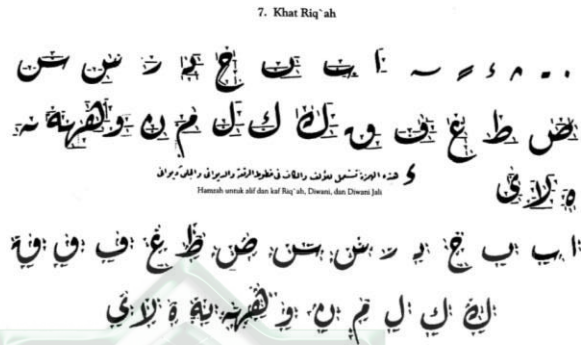 7. Khat Riq`ah
ا ب ں ح د ر س س
ص ط غ ف ق ك ك ل م ن و هه نه
هذه الهمزة تستعمل للألف والكاف فى خطوط الرقعة والديوانى والجلى ديوانى
Hamzah untuk alif dan kaf Riq`ah, Diwani, dan Diwani Jali
ة لا ى
ا ب ب ج د ر س س ص ط غ ف ق
ك ك ل م ن و ة لا ي